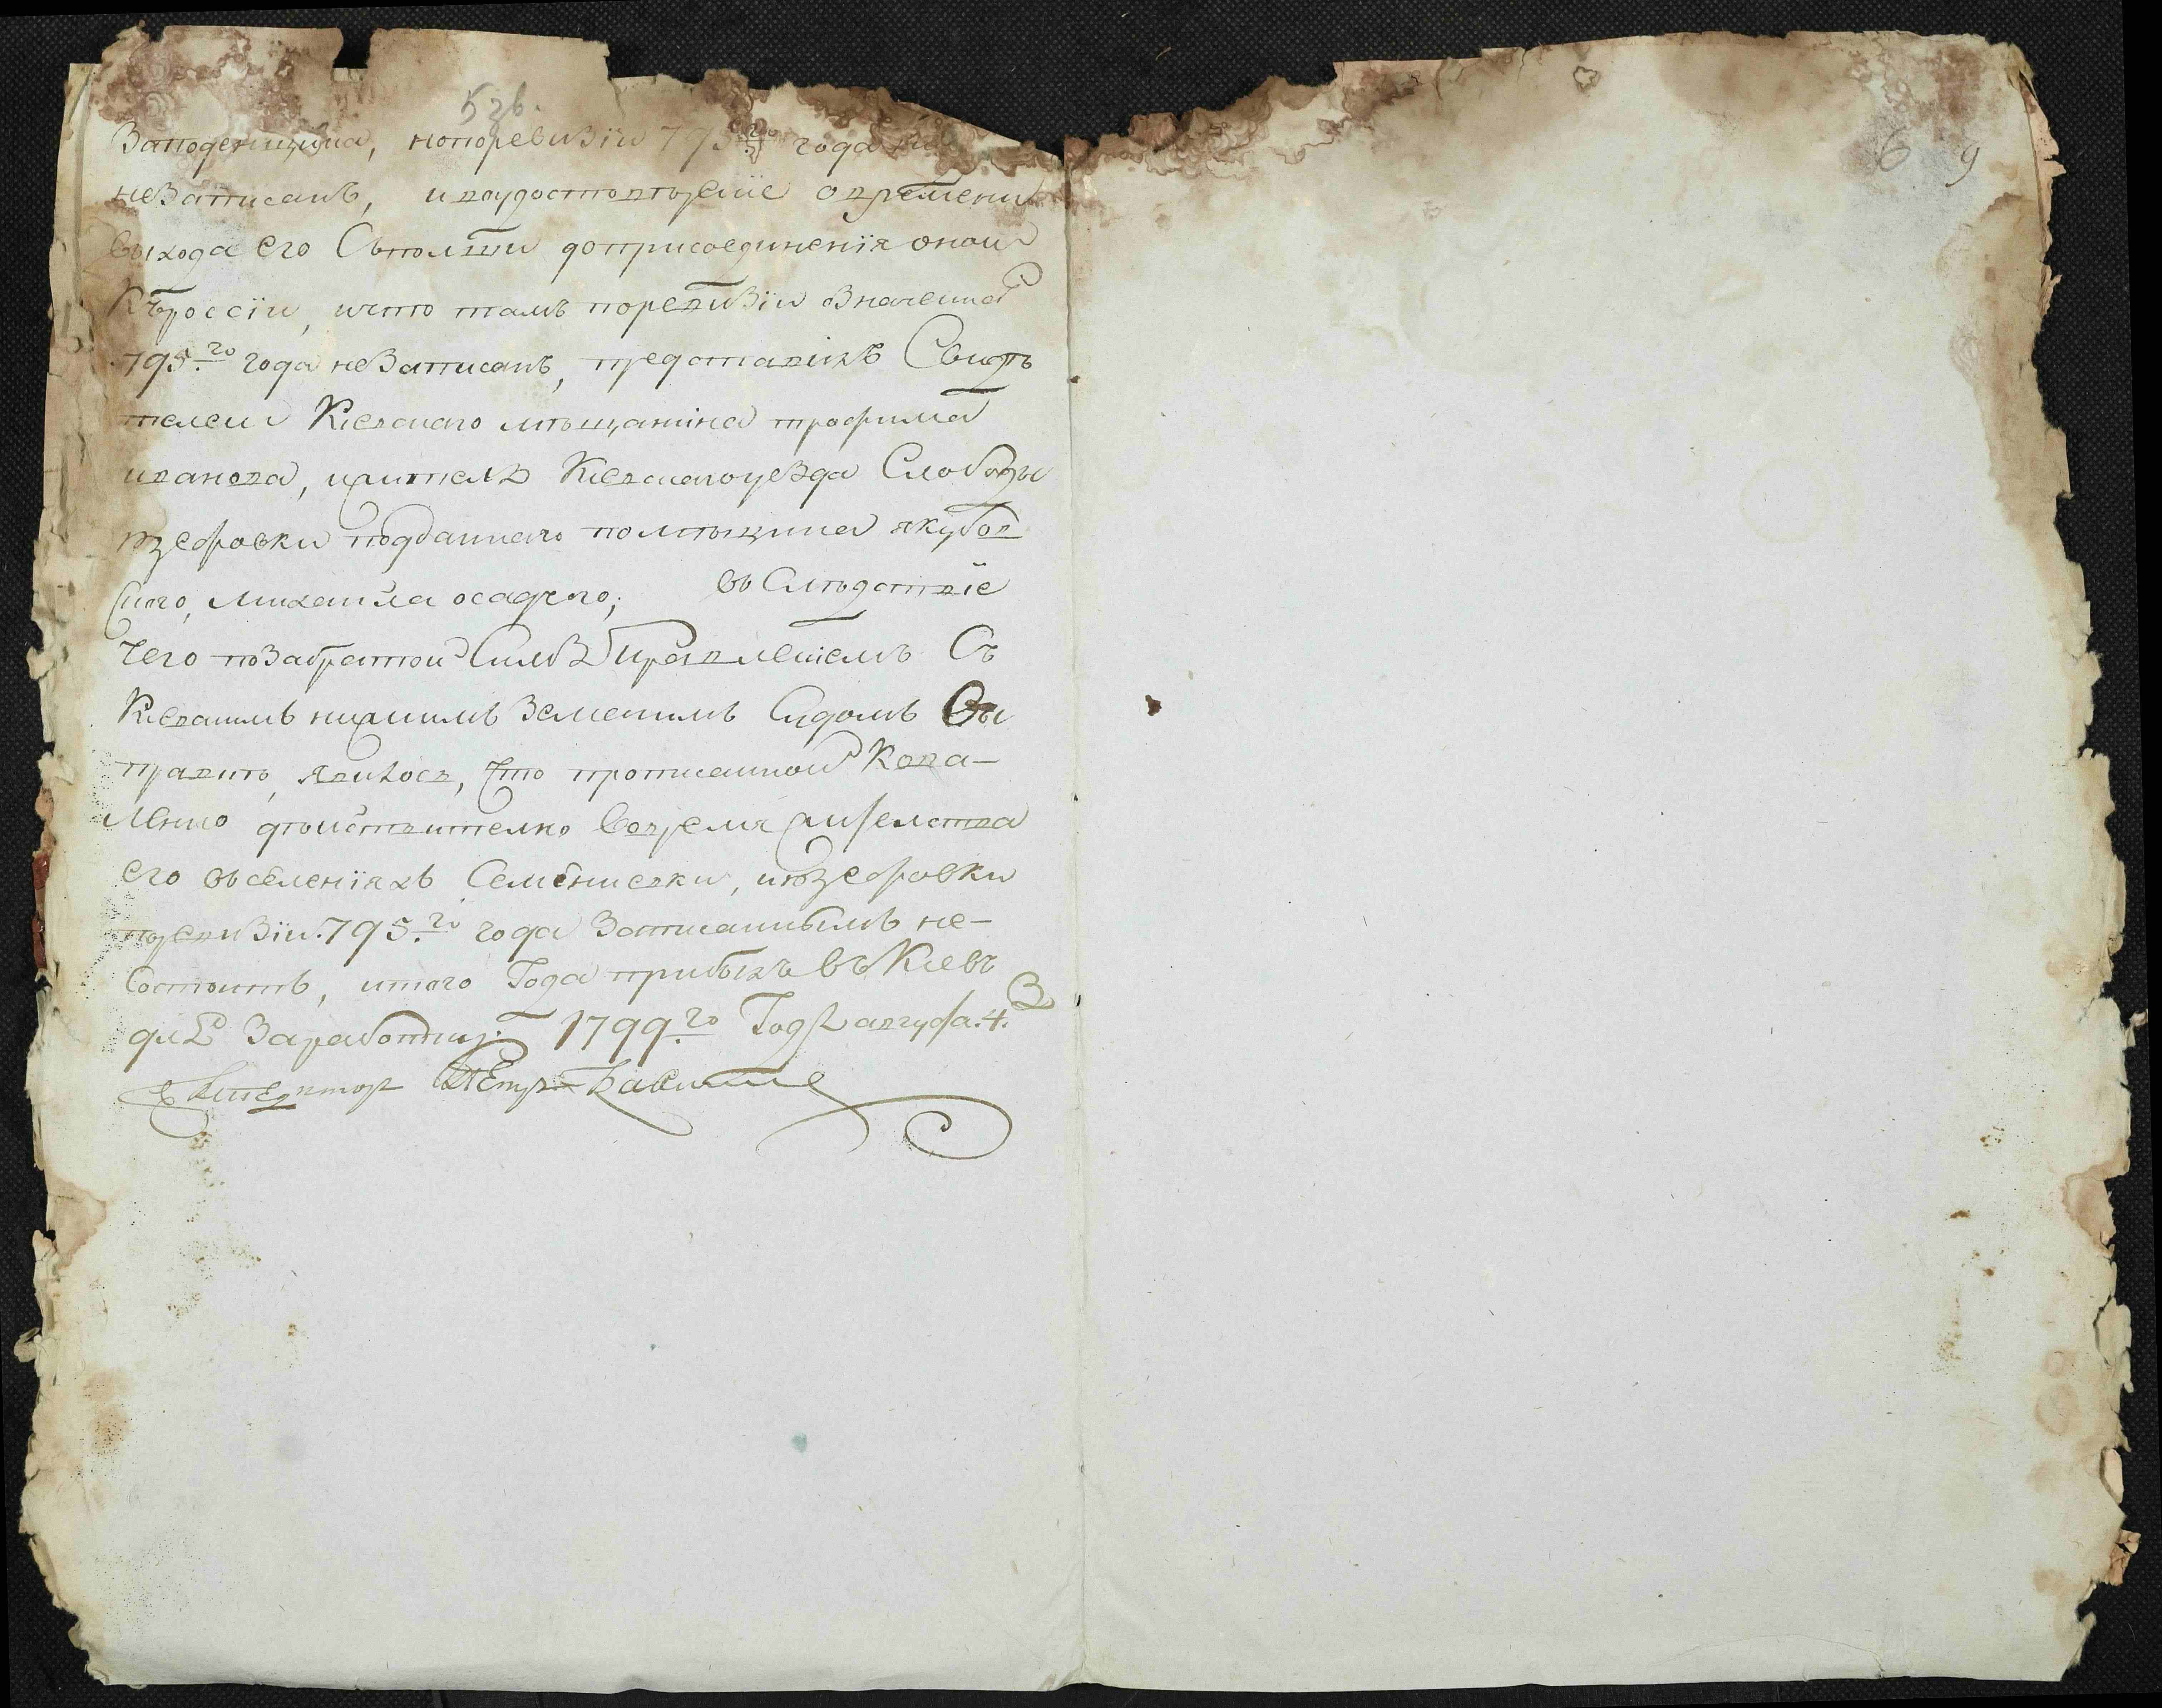 53б.
6 9
Заподенщика, нопоревизїи 795го года
незаписанъ, ивоудостовѣренїе овремени
выхода его Съполши доприсоединенїя оной
Къроссїи, ичто тамъ поревизїи значенной
795го года незаписанъ, представилъ Свидѣ
телей Киевскаго мѣщанина трофима
иванова, ижителя Киевскагоуезда Слободы
юзефовки подданнаго помѣщика якубов
скаго, михайла осадчого; въ Слѣдствїе
Чего повзабратой Симъ Правленїемъ Съ
Киевскимъ нижнимъ Земскимъ Судомъ Вы
правкѣ, явилось, что прописанной Кова-
ленко дѣйствително вовремя жителства
его въселенїяхъ Семениевки, июзефовки
поревизїи 795го года Записаннымъ не-
состоитъ, итого Года прибылъ въ Киевъ
для Заработку; 1799го Года августа 4.
Екзекутор Петръ